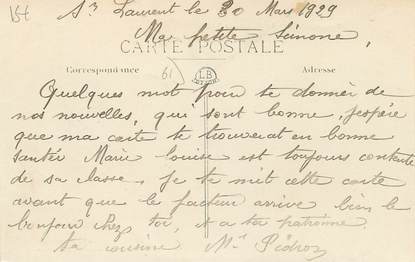 154
St Laurent le 20 Mars 1929
Ma petite Simone,
CARTE POSTALE
Correspondance
61
LB
Adresse
Quelques mot pour te donner de
nos nouvelles, qui sont bonne, j'espère
que ma carte te trouverat en bonne
santée Marie louise est toujours contente
de sa classe. je te met cette carte
avant que le facteur arrive bien le
bonjour chez toi, et a ta patronne
ta cousine M